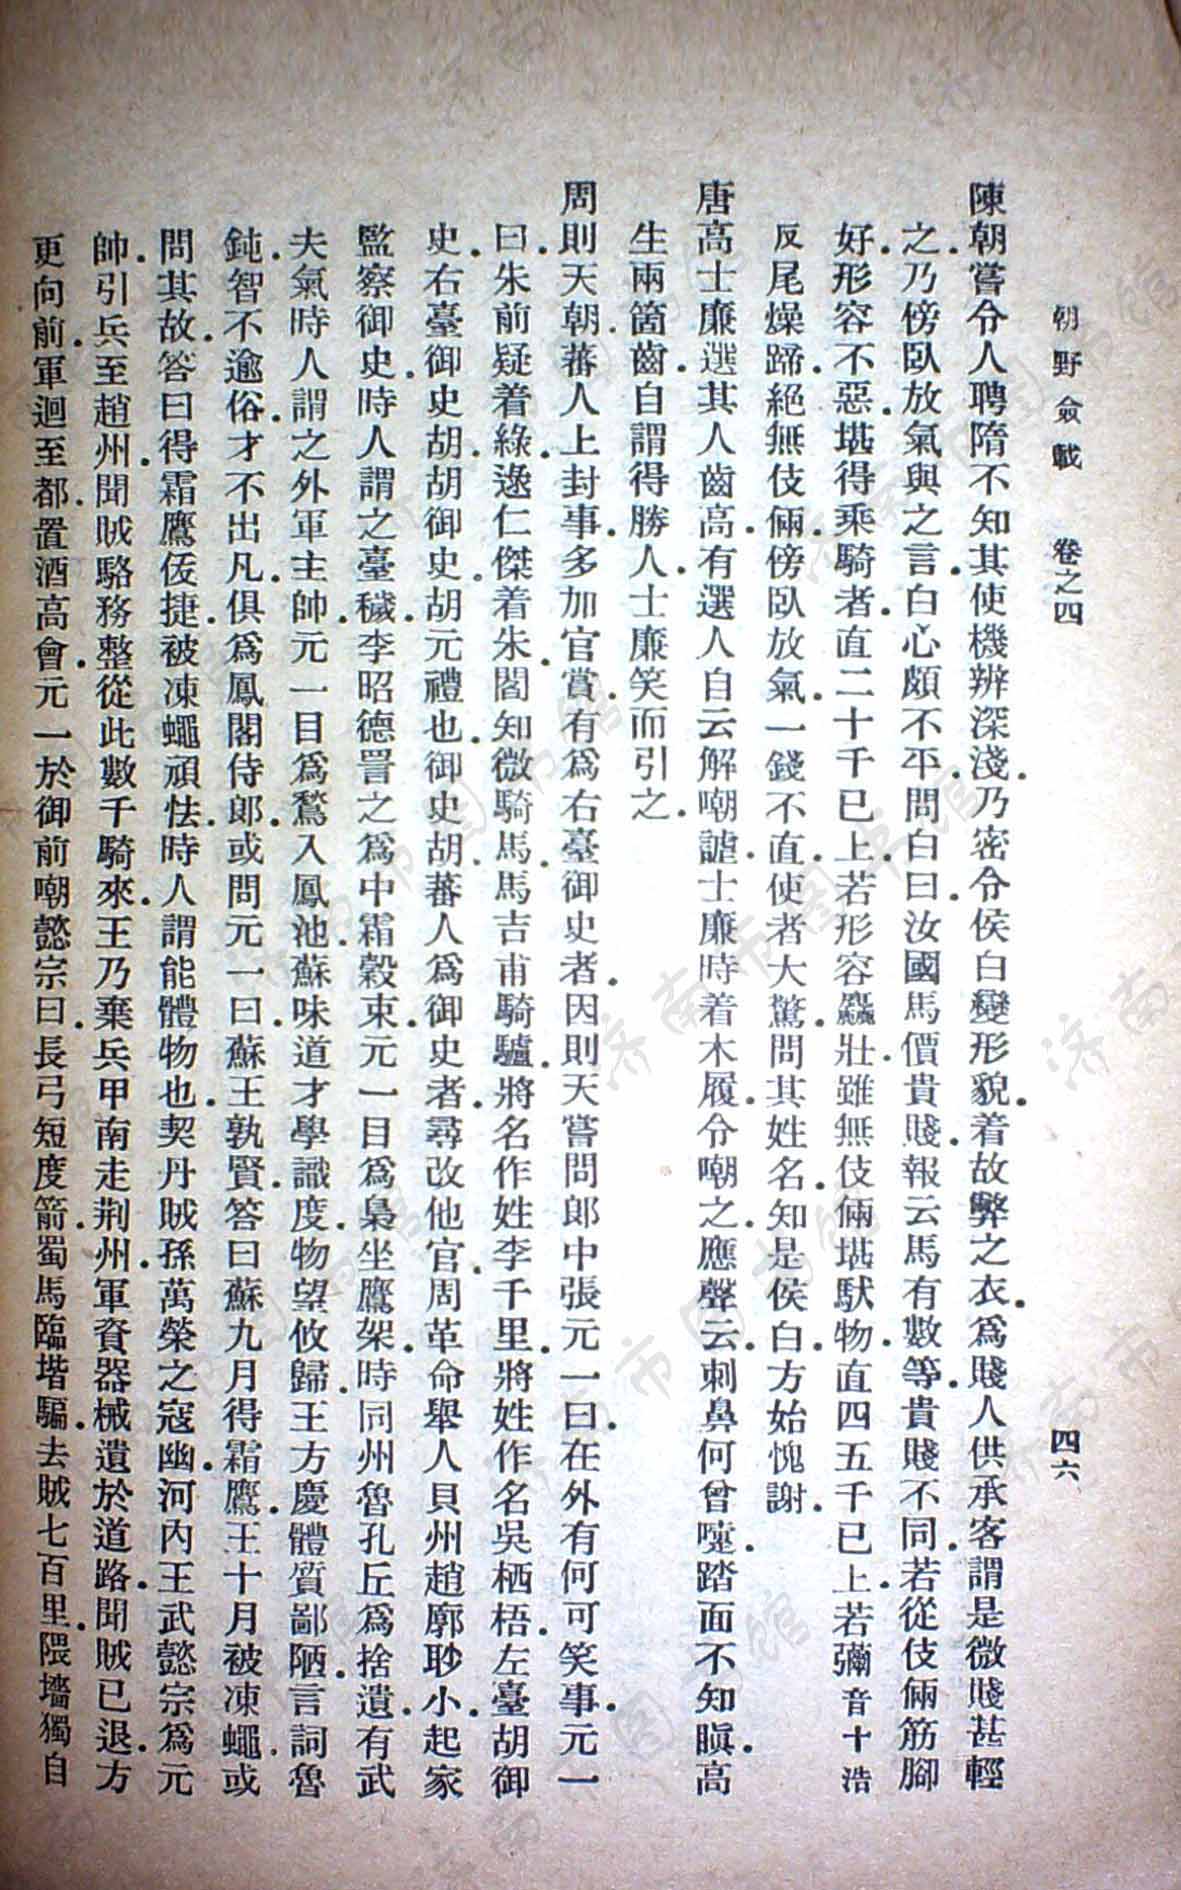 朝野僉載　卷之四　四六
陳朝嘗令人聘隋不知其使機辨深淺乃密令侯白變形貌着故弊之衣爲賤人供承客謂是微賤甚輕
之乃傍臥放氣與之言白心頗不平問白曰汝國馬價貴賤報云馬有數等貴賤不同若從伎倆筋腳
好形容不惡堪得乘騎者直二十千已上若形容麤壯雖無伎倆堪馱物直四五千已上若彌音十浩
反尾燥蹄絕無伎倆傍臥放氣一錢不直使者大驚問其姓名知是侯白方始愧謝
唐高士廉選其人齒高有選人自云解嘲謔士廉時着木履令嘲之應聲云刺鼻何曾嚏踏面不知瞋高
生兩箇齒自謂得勝人士廉笑而引之
周則天朝蕃人上封事多加官賞有爲右臺御史者因則天嘗問郎中張元一曰在外有何可笑事元一
曰朱前疑着綠逖仁傑着朱閻知微騎馬馬吉甫騎驢將名作姓李千里將姓作名吳栖梧左臺胡御
史右臺御史胡胡御史胡元禮也御史胡蕃人爲御史者尋改他官周革命舉人貝州趙廓眇小起家
監察御史時人謂之臺穢李昭德詈之爲中霜穀束元一目爲梟坐鷹架時同州魯孔丘爲捨遺有武
夫氣時人謂之外軍主帥元一目爲鶖入鳳池蘇味道才學識度物望攸歸王方慶體質鄙陋言詞魯
鈍智不逾俗才不出凡俱爲鳳閣侍郎或問元一曰蘇王孰賢答曰蘇九月得霜鷹王十月被凍蠅或
問其故答曰得霜鷹俊捷被凍蠅頑怯時人謂能體物也契丹賊孫萬榮之寇幽河內王武懿宗爲元
帥引兵至趙州聞賊駱務整從此數千騎來王乃棄兵甲南走荆州軍資器械遺於道路聞賊已退方
更向前軍迴至都置酒高會元一於御前嘲懿宗曰長弓短度箭蜀馬臨堦騙去賊七百里隈墻獨自